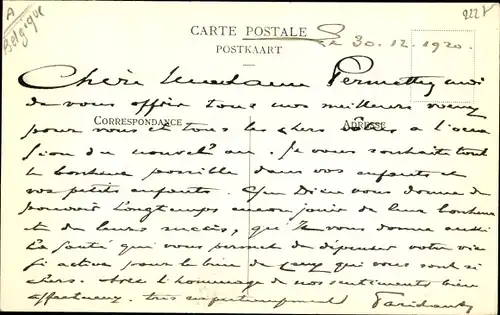 A
Belgique
222
CARTE POSTALE
POSTKAART
Le 30.12.1920.
Chère Madame Permettez moi
de vous offrir tous mes meilleurs vœux
pour vous et tous les chers vôtres à l'occa
CORRESPONDANCE
ADRESSE
sion du nouvel an. Je vous souhaite tout
le bonheur possible dans vos enfants et
vos petits enfants. Que Dieu vous donne de
pouvoir longtemps encore jouir de leur bonheur
et de leurs succès, que vous donne aussi
la santé qui vous permet de dépenser votre vie
si active pour le bien de ceux qui vous sont si
chers. Avec l'hommage de mes sentiments bien
affectueux. très